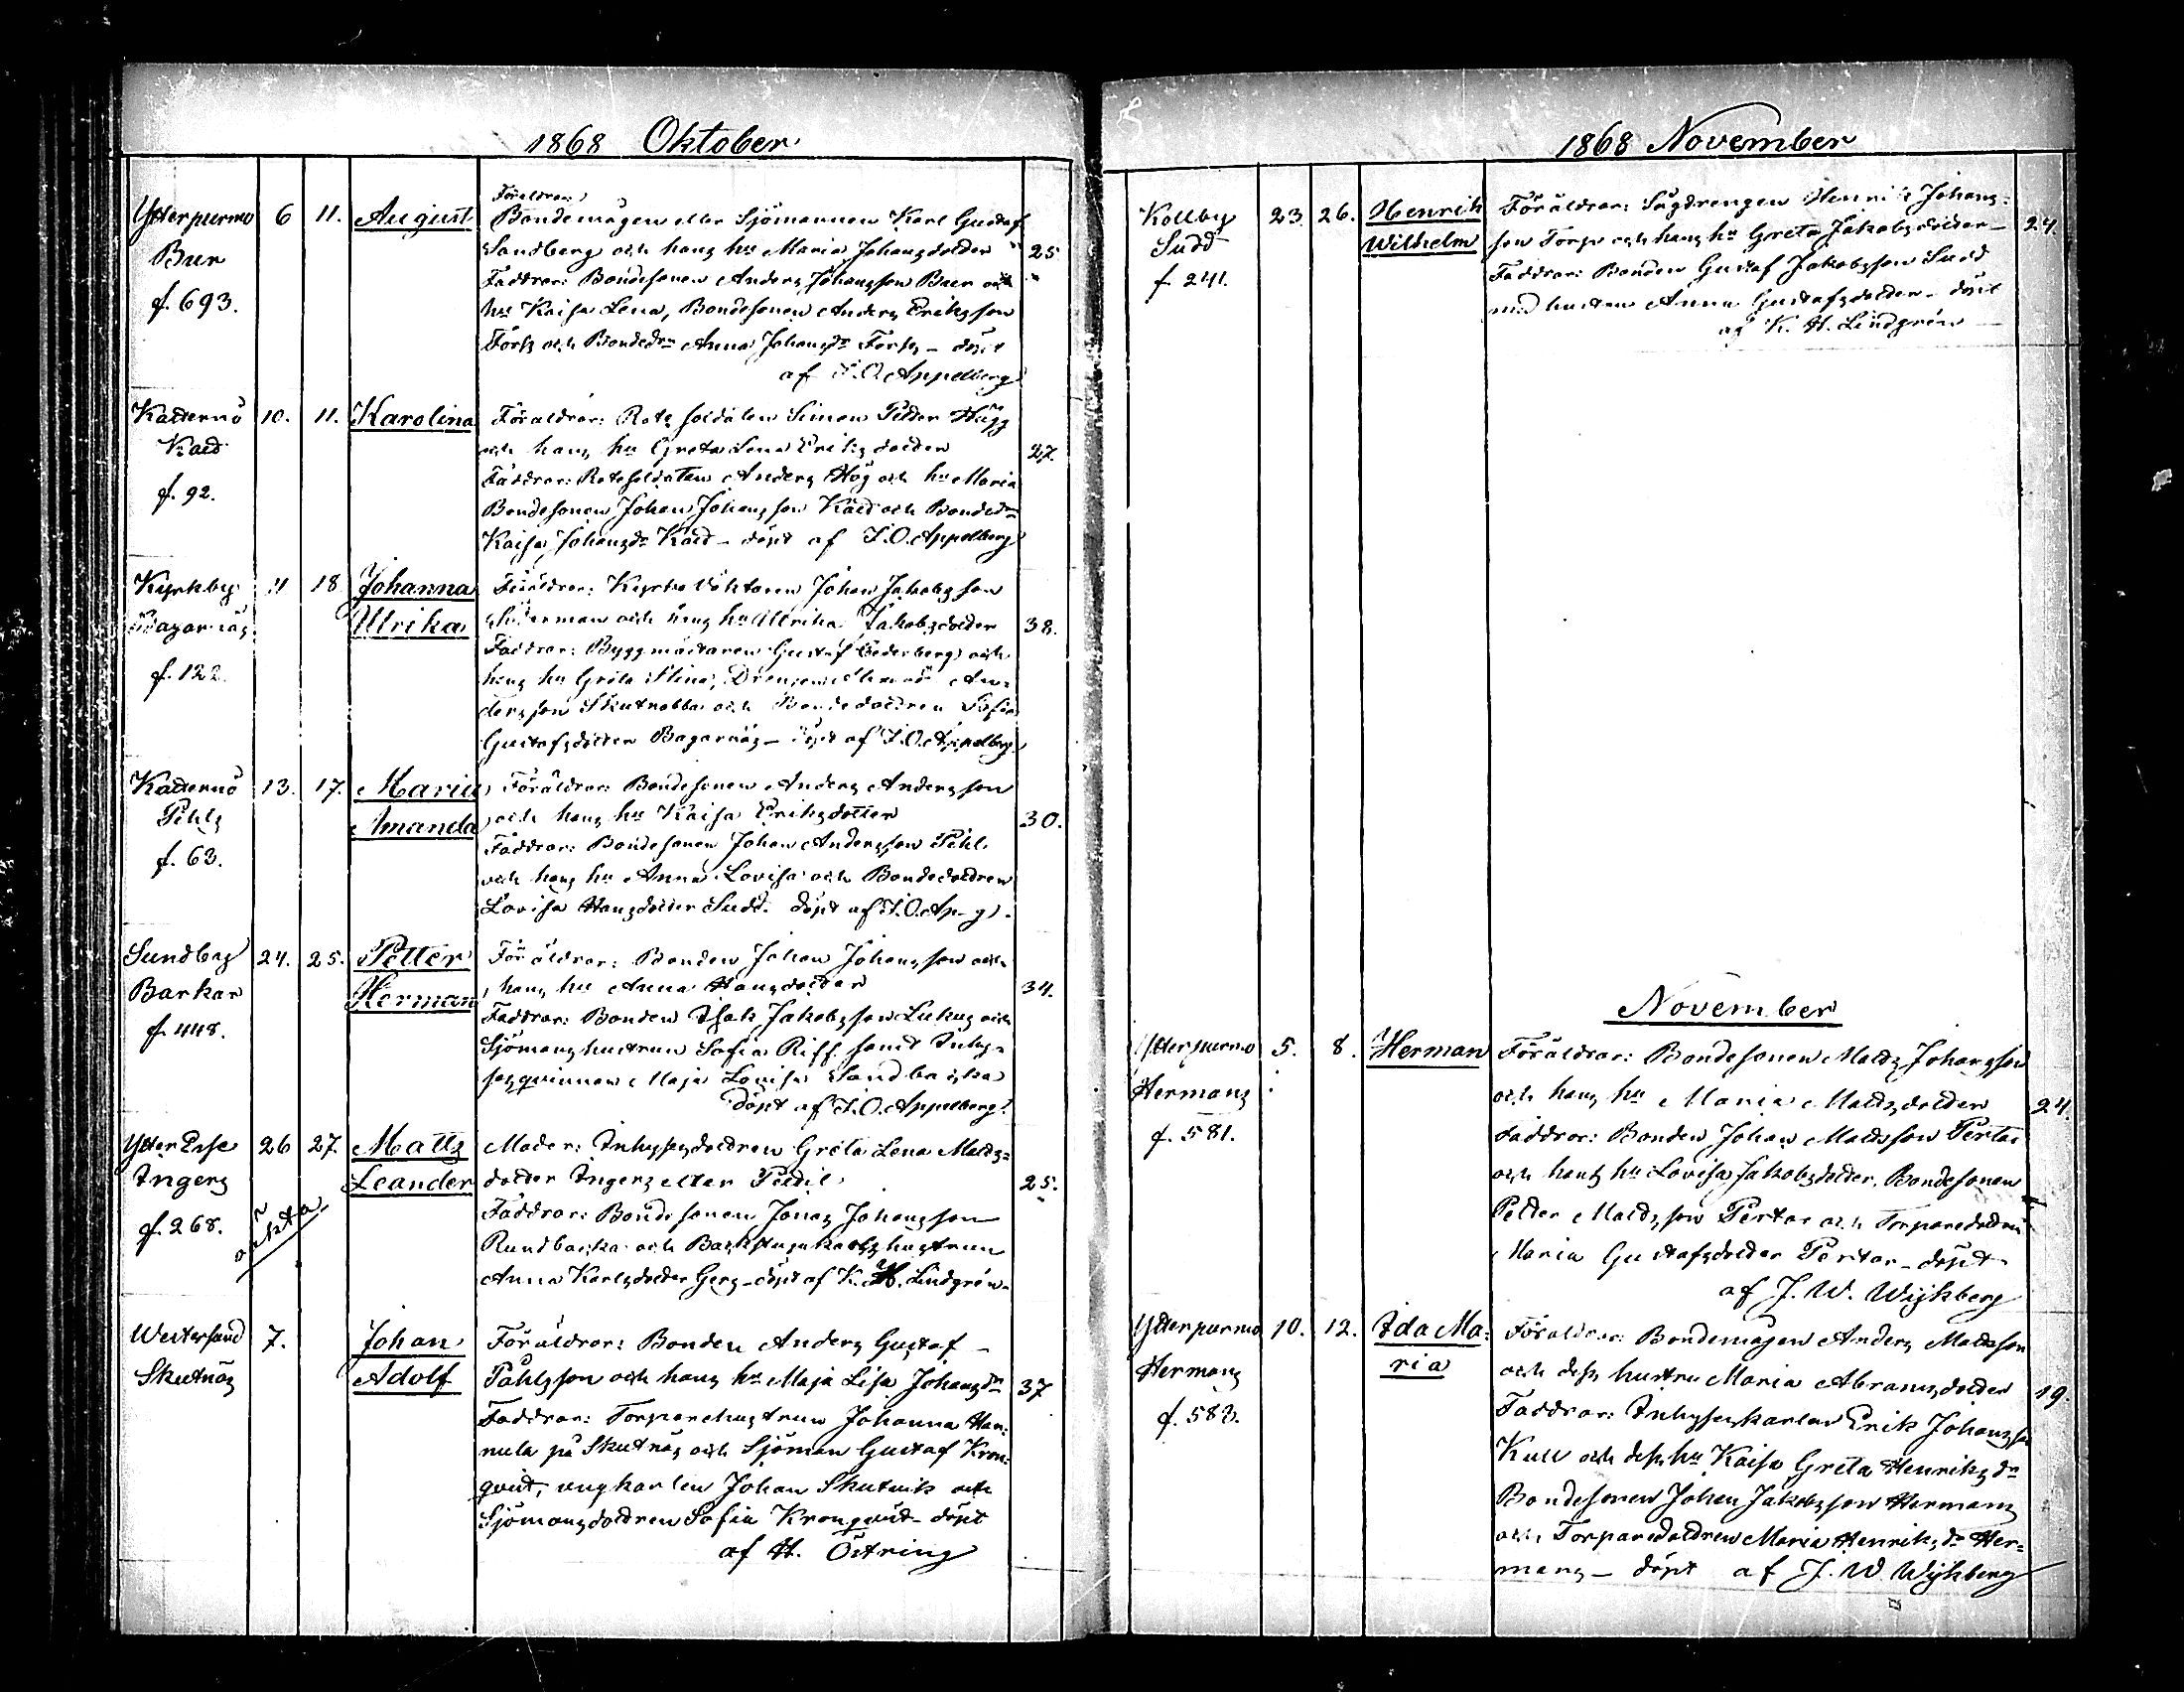 1868 Oktober
Ytterpurmo 6 11. August Föräldrar:
Bur Bondemågen eller Sjömannen Karl Gustaf
f. 693. Sandberg och hans hu Maria Johansdotter 25
Faddrar: Bondesonen Anders Johansson Buer och
hu Kaisa Lena, Bondesonen Anders Eriksson
Forss och Bondedn Anna Johansdr Forss – döpt
af I. O. Appelberg
Katternö 10. 11. Karolina Föräldrar: Rotesoldaten Simon Petter Hägg
Kald och hans hu Greta Lena Eriksdotter 27.
f. 92. Faddrar: Rotesoldaten Anders Hög och hu Maria
Bondesonen Johan Johansson Kald och Bondedn
Kaisa Johansdr Kald – döpt af I. O. Appelberg
Kyrkby 11 18 Johanna Föräldrar: Johan Jakobsson
f. 122. Ulrika och hans hu Ulrika Jakobsdotter 38.
Faddrar: Byggmästaren Gustaf Cederberg och
hans hu Greta Stina, Drengen An-
dersson Skutnabba och Bondedottren Sofia
Gustafsdotter Bagarnäs – döpt af I. O. Appelberg
Katternö 13. 17. Maria Föräldrar: Bondesonen Anders Andersson
Pehls Amanda och hans hu Kaisa Eriksdotter 30.
f. 63. Faddrar: Bondesonen Johan Andersson Pehls
och hans hu Anna Lovisa och Bondedottren
Lovisa Hansdotter Sudd. döpt af I. O. Ap–g.
Sundby 24. 25. Petter Föräldrar: Bonden Johan Johansson och
Barkar Herman hans hu Anna Hansdotter 34.
f. 448. Faddrar: Bonden Isak Jakobsson Lukus och
Sjömanshustrun Sofia Riff samt Inhy-
sesqvinnan Maja Lovisa Sandbacka
döpt af I. O. Appelberg.
Ytter Esse 26 27. Matts Moder: Inhysesdottren Greta Lena Matts-
Ingers Leander dotter Ingers eller Pedil 25.
f. 268. oäkta Faddrar: Bondesonen Jonas Johansson
Rundbacka och Backstugukarlshustrun
Anna Karlsdotter Gers – döpt af K. H. Lindgrén.
Westersund 7. Johan Föräldrar: Bonden Anders Gustaf
Skutnäs Adolf Påhlsson och hans hu Maja Lisa Johansdr 37
Faddrar: Torparehustrun Johanna Han-
nula på Skutnäs och Sjöman Gustaf Kron-
qvist, ungkarlen Johan Skutnäs och
Sjömansdottren Sofia Kronqvist – döpt
af H. Östring
1868 November
Kållby 23 26. Henrik Föräldrar: Sågdrengen Henrik Johans-
Sudd Wilhelm son Torpo och hans hu Greta Jakobsdotter – 24.
f. 241. Faddrar: Bonden Gustaf Jakobsson Sudd
med hustru Anna Gustafsdotter – döpt
af K. H. Lindgrén
November
Ytterpurmo 5. 8. Herman Föräldrar: Bondesonen Matts Johansson
Hermans och hans hu Maria Mattsdotter 24.
f. 581. Faddrar: Bonden Johan Mattsson Pertas
och hans hu Lovisa Jakobsdotter, Bondesonen
Petter Mattsson Pertas och Torparedottren
Maria Gustafsdotter Pertas – döpt
af J. W. Wijkberg
Ytterpurmo 10. 12. Ida Ma- Föräldrar: Bondemågen Anders Mattsson
Hermans ria och dess hustru Maria Abramsdotter 19.
f. 583. Faddrar: Inhyseskarlen Erik Johansson
Kull och dess hu Kaisa Greta Henriksdr
Bondesonen Johan Jakobsson Hermans
och Torparedottren Maria Henriksdr Her-
mans – döpt af J. W. Wijkberg